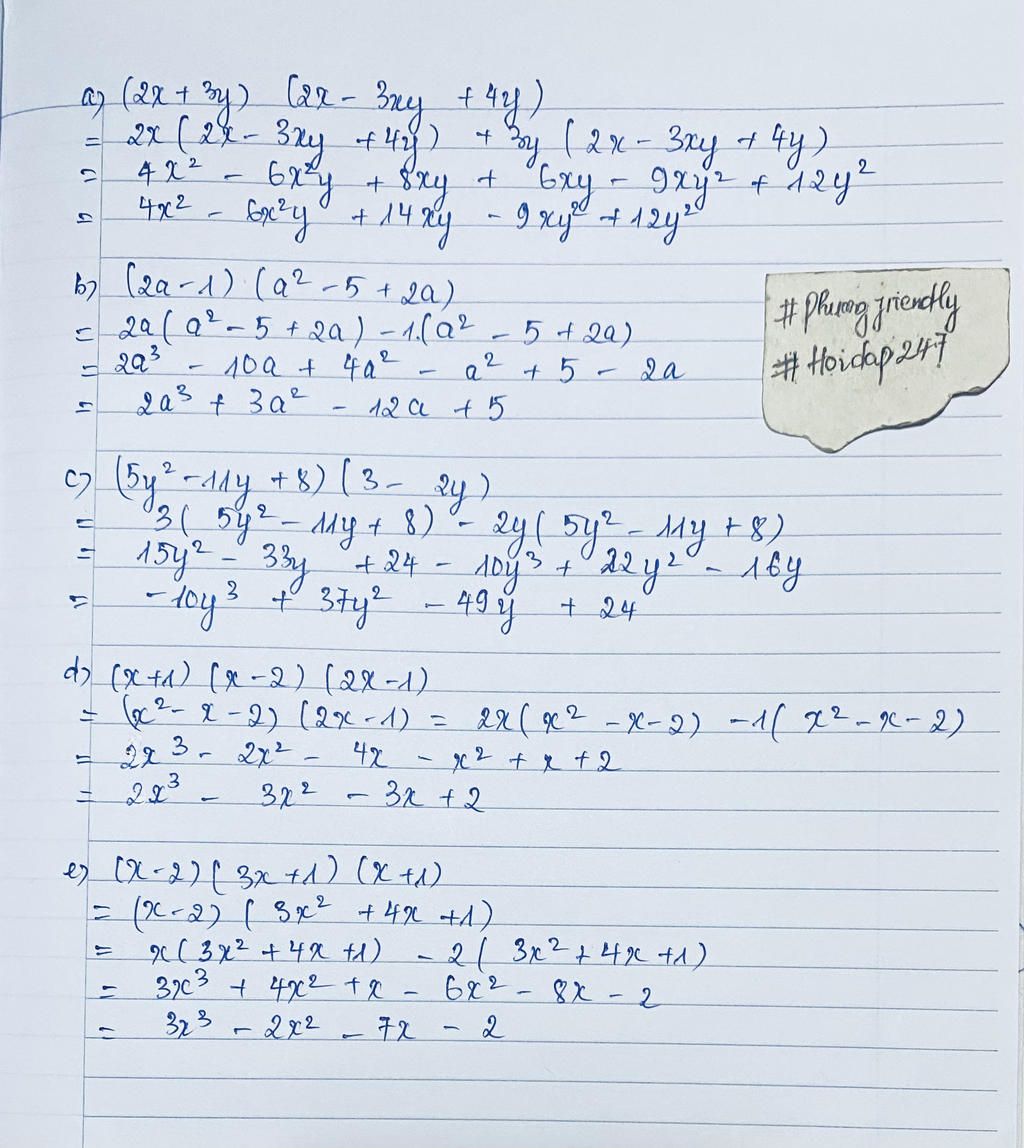 a) (2x + 3y) (2x - 3xy + 4y)
= 2x (2x - 3xy + 4y) + 3y (2x - 3xy + 4y)
= 4x² - 6x²y + 8xy + 6xy - 9xy² + 12y²
= 4x² - 6x²y + 14xy - 9xy² + 12y²
b) (2a - 1) (a² - 5 + 2a)
= 2a (a² - 5 + 2a) - 1.(a² - 5 + 2a)
= 2a³ - 10a + 4a² - a² + 5 - 2a
= 2a³ + 3a² - 12a + 5
# Phuong friendly
# Hoidap 247
c) (5y² - 11y + 8) (3 - 2y)
= 3 (5y² - 11y + 8) - 2y (5y² - 11y + 8)
= 15y² - 33y + 24 - 10y³ + 22y² - 16y
= -10y³ + 37y² - 49y + 24
d) (x + 1) (x - 2) (2x - 1)
= (x² - x - 2) (2x - 1) = 2x (x² - x - 2) - 1 (x² - x - 2)
= 2x³ - 2x² - 4x - x² + x + 2
= 2x³ - 3x² - 3x + 2
e) (x - 2) (3x + 1) (x + 1)
= (x - 2) (3x² + 4x + 1)
= x (3x² + 4x + 1) - 2 (3x² + 4x + 1)
= 3x³ + 4x² + x - 6x² - 8x - 2
= 3x³ - 2x² - 7x - 2